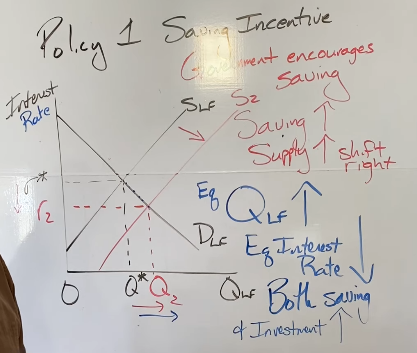 Policy 1 Saving Incentive
Government encourages
saving
Interest
Rate
SLF
S2
Saving ↑
Supply ↑ shift
right
r*
r2
Eq QLF ↑
DLF
Eq Interest
Rate ↓
O
Q*
Q2
QLF
Both saving
& Investment ↑